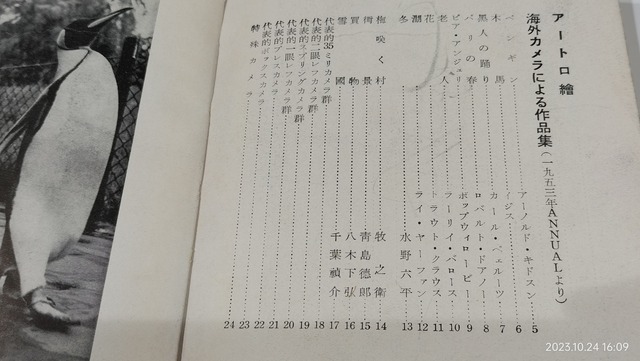 アートロ繪
海外カメラによる作品集(一九五三年ANNUALより)
ペンギン アーノルド・キドスン 5
木馬 イジス 6
黒人の踊り カール・ペルーツ 7
パリの春 ロバルト・ドアノー 8
ピア・アンジェリ ボップウィロービー 9
老人 ラーリイ・バロース 10
花 トラウト・クラウス 11
潮 ライ・ヤーファン 12
冬 水野六平 13
梅咲く村 牧之衛 14
街景 青島德郎 15
買物 八木下弘 16
雪國 千葉禎介 17
代表的35ミリカメラ群 18
代表的二眼レフカメラ群 19
代表的スプリングカメラ群 20
代表的一眼レフカメラ群 21
代表的プレスカメラ 22
代表的ボックスカメラ 23
特殊カメラ 24
2023.10.24 16:09